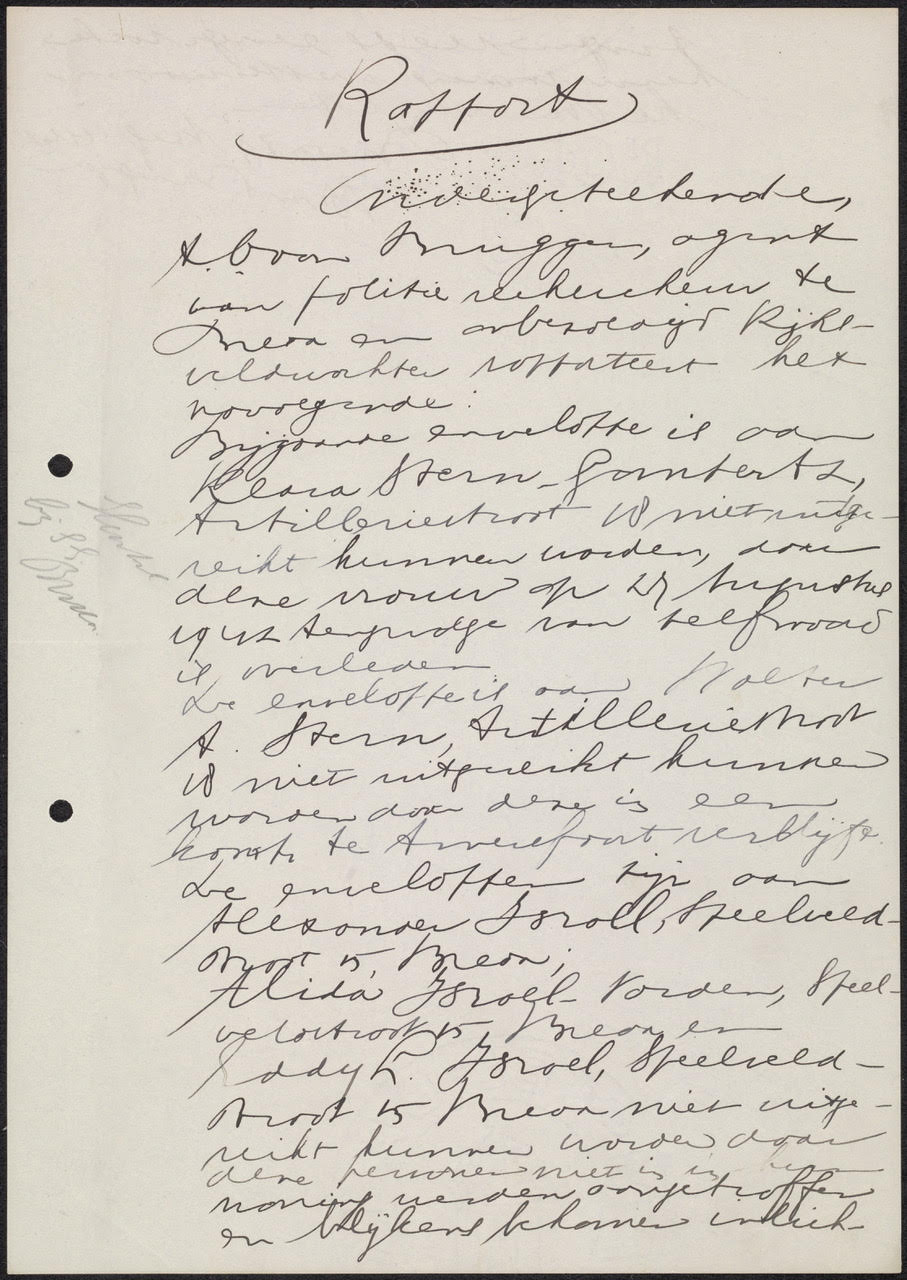 Rapport
Ondergeteekende,
A. B van Bruggen, agent
van politie rechercheur te
Breda en onbezoldigd Rijks-
veldwachter rapporteert het
navolgende:
Bijgaande enveloppe is aan
Klara Stern-Gomperts,
Artilleriestraat 18 niet uitge-
reikt kunnen worden, daar
deze vrouw op 27 Augustus
1942 tengevolge van zelfmoord
is overleden
De enveloppe is aan Walter
A. Stern, Artilleriestraat
18 niet uitgereikt kunnen
worden daar deze in een
kamp te Amersfoort verblijft.
De enveloppen zijn aan
Alexander Israel, Speelveld-
straat 15, Breda;
Alida Israel-Vorden, Speel-
veldstraat 15 Breda, en
Eddy L. Israel, Speelveld-
straat 15 Breda niet uitge-
reikt kunnen worden daar
deze personen niet in hun
woning werden aangetroffen
en blijkens bekomen inlich-
bij SS
Breda